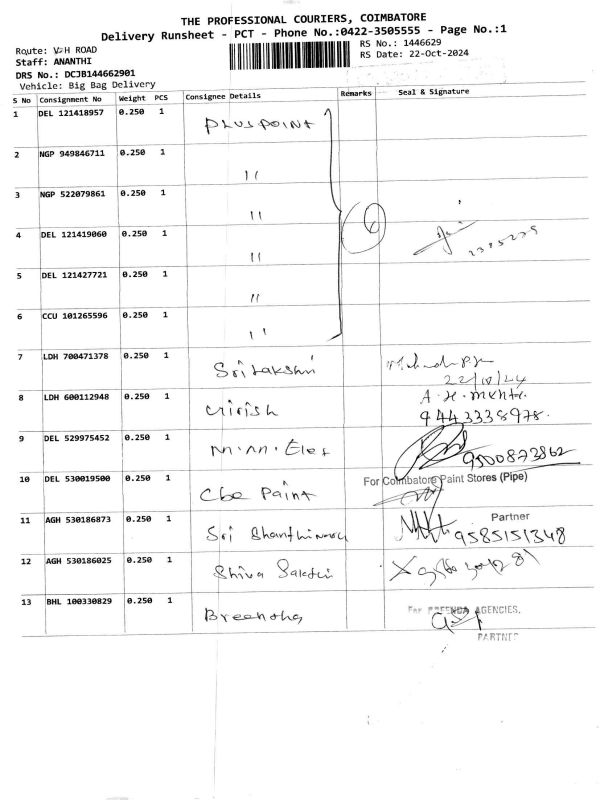 THE PROFESSIONAL COURIERS, COIMBATORE
Delivery Runsheet - PCT - Phone No.:0422-3505555 - Page No.:1
Route: V.H ROAD
RS No.: 1446629
Staff: ANANTHI
RS Date: 22-Oct-2024
DRS No.: DCJB144662901
Vehicle: Big Bag Delivery
S No Consignment No Weight PCS Consignee Details Remarks Seal & Signature
1 DEL 121418957 0.250 1 PLUSPOINT
2 NGP 949846711 0.250 1 "
3 NGP 522079861 0.250 1 "
6
4 DEL 121419060 0.250 1 "
5 DEL 121427721 0.250 1 "
6 CCU 101265596 0.250 1 "
7 LDH 700471378 0.250 1 Sri Lakshmi
22/10/24
8 LDH 600112948 0.250 1 Girish
9443338978.
9 DEL 529975452 0.250 1 M.M. Eles
9500873862
10 DEL 530019500 0.250 1 Cbe Paint For Coimbatore Paint Stores (Pipe)
Partner
11 AGH 530186873 0.250 1 Sri 9585151348
12 AGH 530186025 0.250 1 Shiva Sakthi
13 BHL 100330829 0.250 1 For BREENDA AGENCIES,
PARTNER